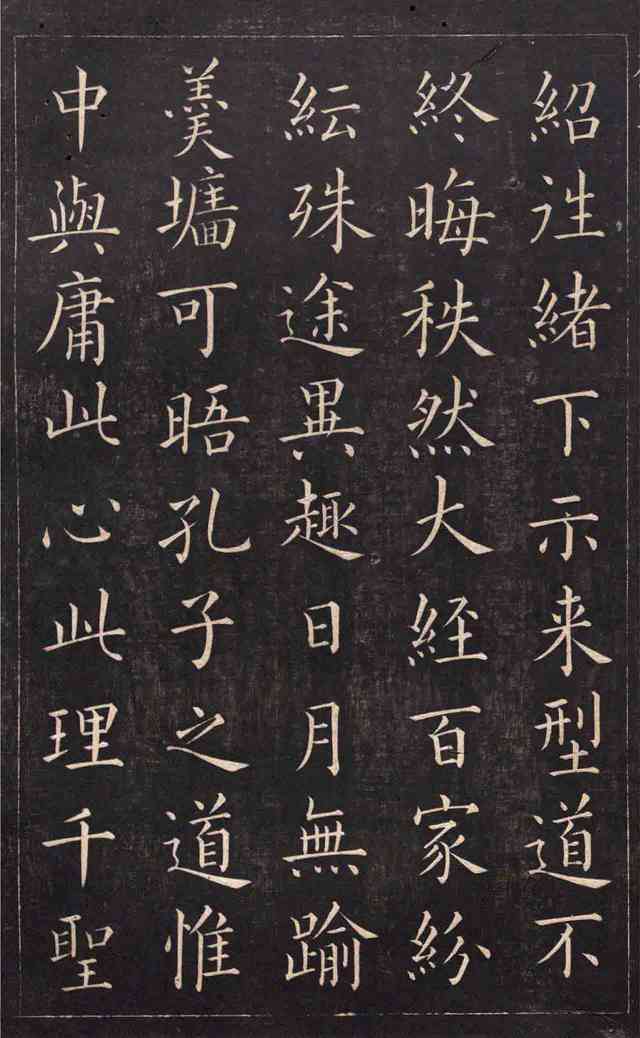 紹往緒下示来型道不
終晦秩然大經百家紛
紜殊途異趣日月無踰
羹墻可晤孔子之道惟
中與庸此心此理千聖